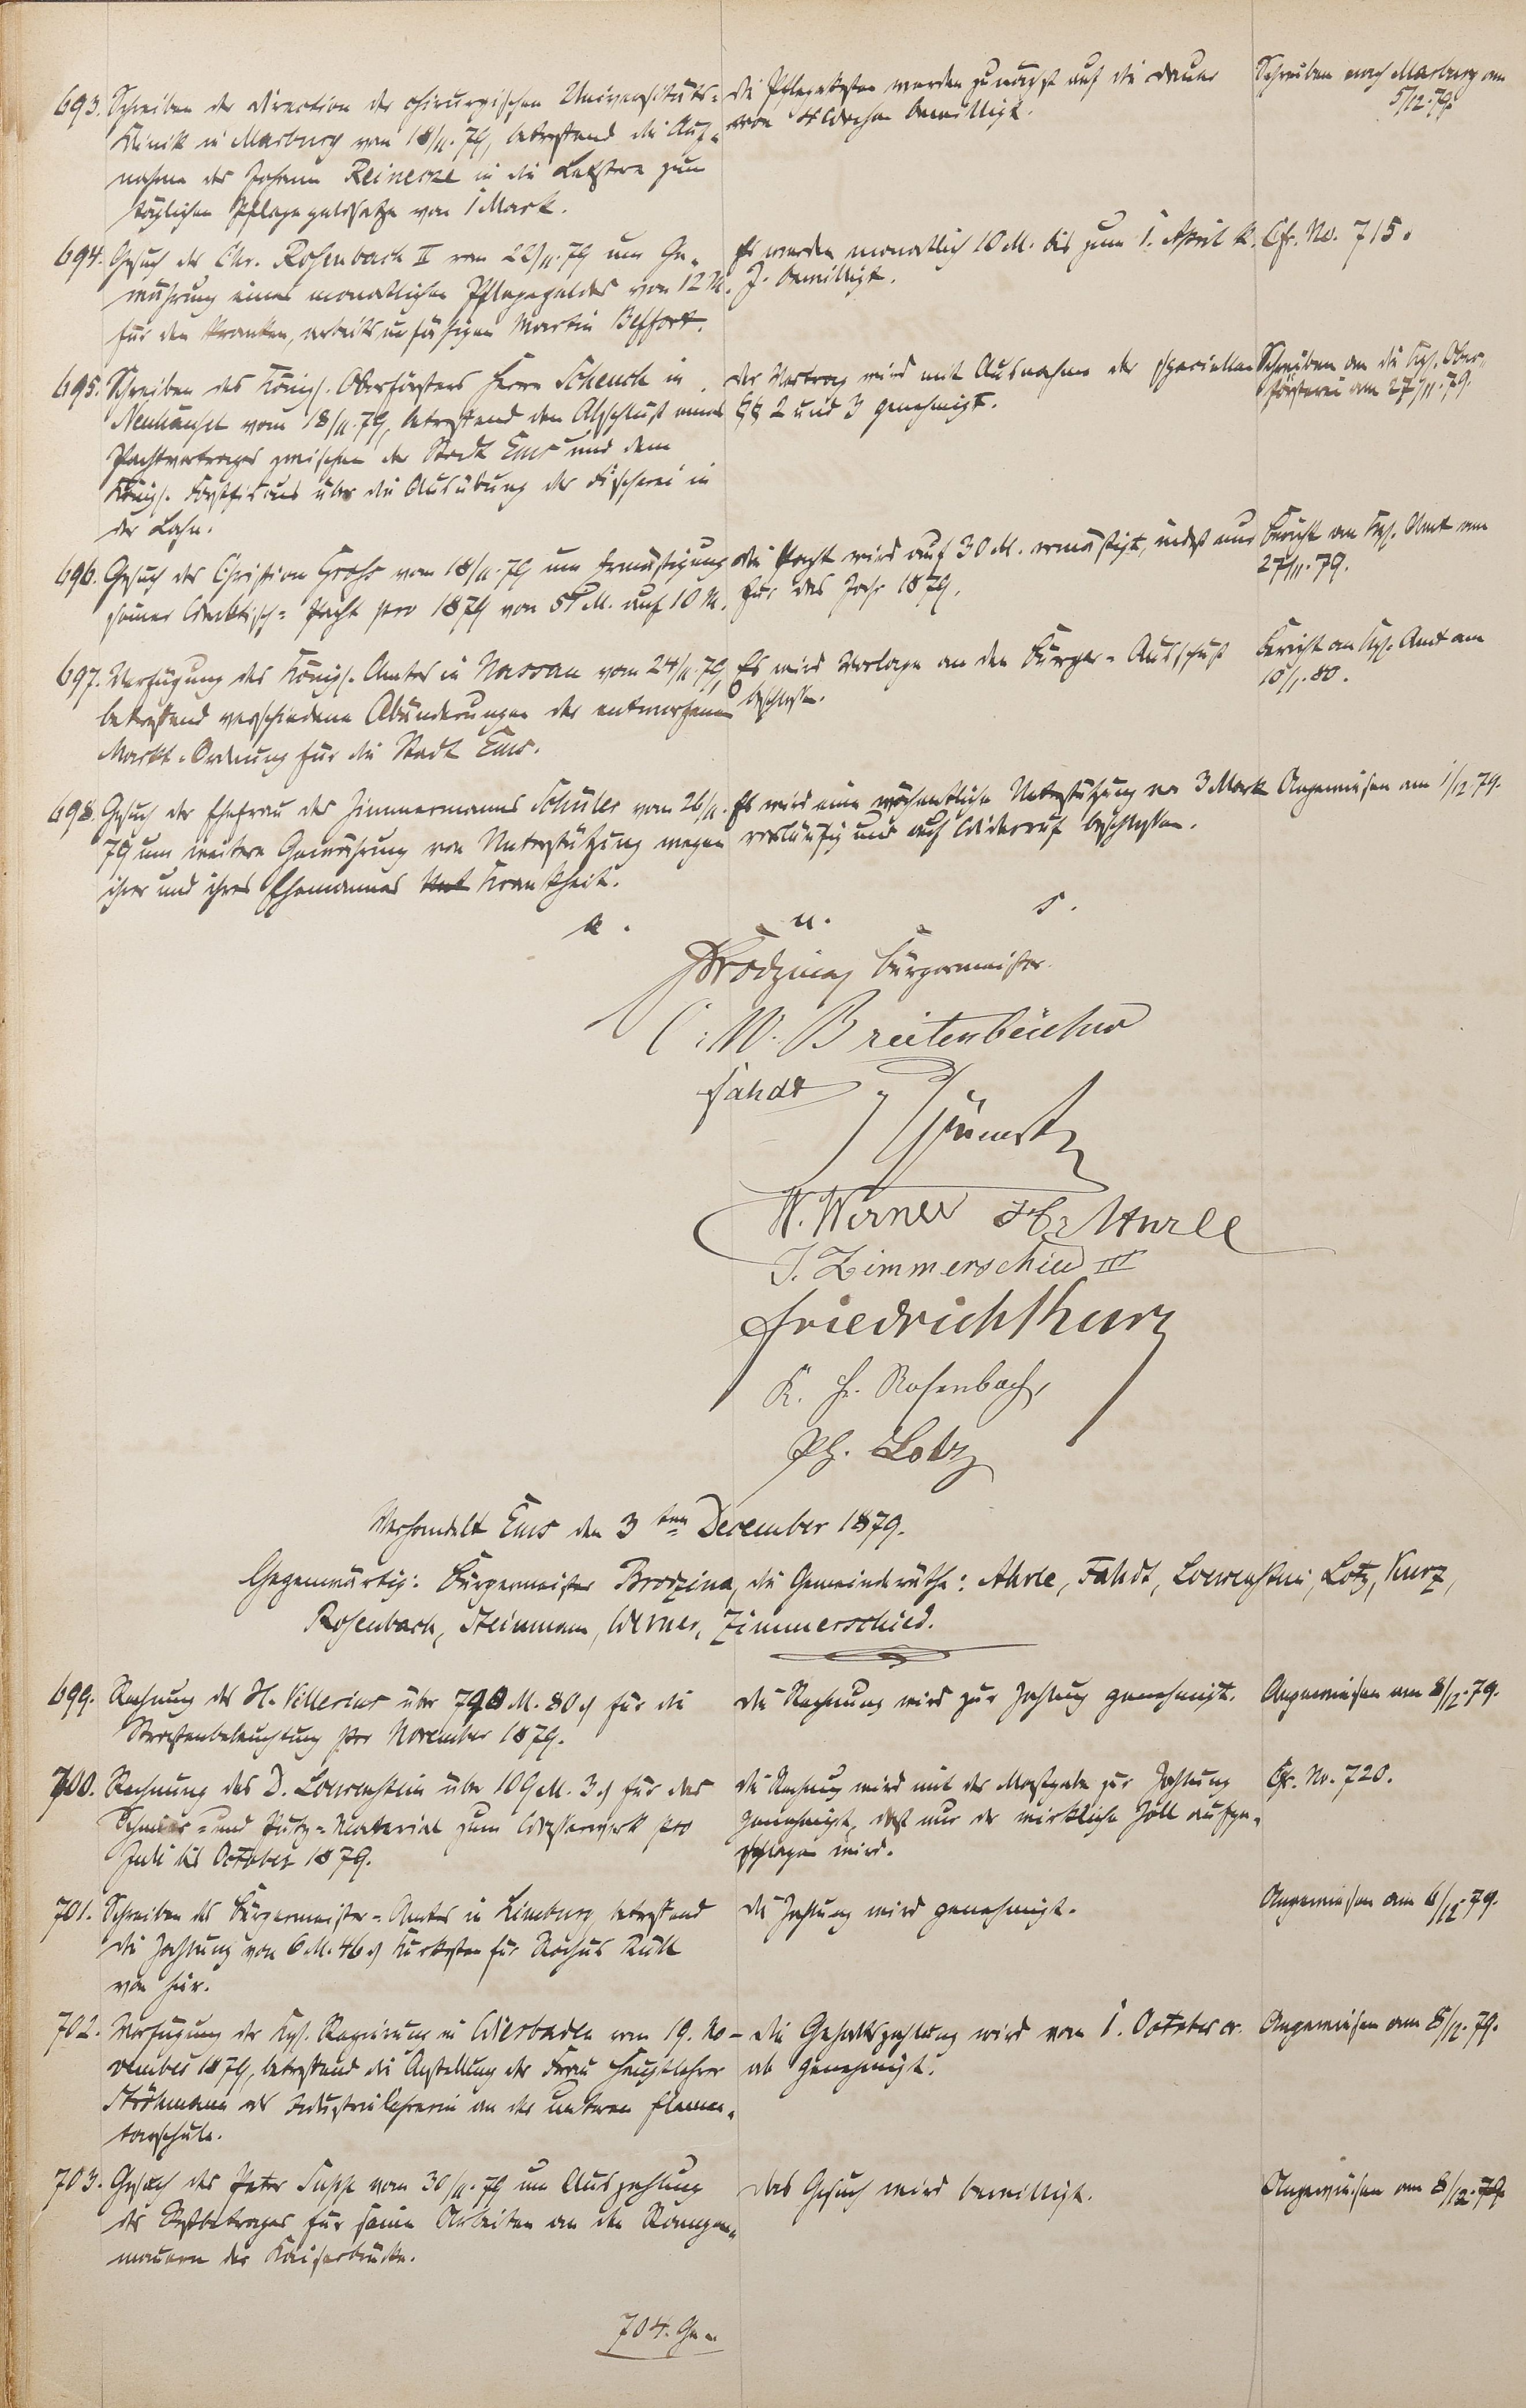 693. Schreiben der Direction der chirurgischen Universitäts-
Klinik in Marburg vom 18/11.79, betreffend die Auf-
nahme des Johann Reinecke in die Letztere zum
täglichen Pflegegeldsatze von 1 Mark.
Die Pflegekosten werden zunächst auf die Dauer
von 4 Wochen bewilligt.
Schreiben nach Marburg am
5/12.79.
694. Gesuch des Chr. Rosenbach II vom 22/11.79 um Ge-
währung eines monatlichen Pflegegeldes von 12 M.
für den kranken, arbeitsunfähigen Martin Beffort.
Es werden monatlich 10 M. bis zum 1. April k.
J. bewilligt.
Cfr. No. 715.
695. Schreiben des Königl. Oberförsters Herrn Schenck in
Neuhäusel vom 18/11.79, betreffend den Abschluß eines
Pachtvertrages zwischen der Stadt Ems und dem
Königl. Forstfiskus über die Ausübung der Fischerei in
der Lahn.
Der Vertrag wird mit Ausnahme der speciellen
§§ 2 und 3 genehmigt.
Schreiben an die Kgl. Ober-
försterei am 27/11.79.
696. Gesuch des Christian Grohs vom 18/11.79 um Ermäßigung
seiner Pacht pro 1879 von 51 M. auf 10 M.
Die Pacht wird auf 30 M. ermäßigt, indeß nur
für das Jahr 1879.
Bericht an Kgl. Amt am
27/11.79.
697. Verfügung des Königl. Amtes in Nassau vom 24/11.79,
betreffend verschiedene Abänderungen der entworfenen
Markt-Ordnung für die Stadt Ems.
Es wird Vorlage an den Bürger-Ausschuß
beschlossen.
Bericht an Kgl. Amt am
10/1.80.
698. Gesuch der Ehefrau des Zimmermanns Schüler vom 26/11.
79 um weitere Gewährung von Unterstützung wegen
ihrer und ihres Ehemannes Krankheit.
Es wird eine wöchentliche Unterstützung von 3 Mark
vorläufig und auf Widerruf beschlossen.
Angewiesen am 1/12.79.
a. u. s.
Brodzina Bürgermeister.
C. W. Breitenbücher
Fahdt
W. Werner
J. Zimmerschied III
Friedrich Kurz
K. H. Rosenbach
Ph. Lotz
Verhandelt Ems den 3ten December 1879.
Gegenwärtig: Bürgermeister Brodzina, die Gemeinderäthe: Ahrle, Fahdt, Loewenstein, Lotz, Kurz,
Rosenbach, Steinmann, Werner, Zimmerschied.
699. Rechnung des H. Villerius über 790 M. 80 ₰ für die
Straßenbeleuchtung pro November 1879.
Die Rechnung wird zur Zahlung genehmigt.
Angewiesen am 8/12.79.
700. Rechnung des D. Loewenstein über 109 M. 3 ₰ für das
Schmier- und Putz-Material zum Wasserwerk pro
Juli bis October 1879.
Die Rechnung wird mit der Maßgabe zur Zahlung
genehmigt, daß nur der wirkliche Zoll aufge-
schlagen wird.
Cfr. No. 720.
701. Schreiben des Bürgermeister-Amtes in Limburg, betreffend
die Zahlung von 6 M. 46 ₰ Kurkosten für Rochus
von hier.
Die Zahlung wird genehmigt.
Angewiesen am 6/12.79.
702. Verfügung der Kgl. Regierung in Wiesbaden vom 19. No-
vember 1879, betreffend die Anstellung der Frau Hauptlehrer
Ströhmann als Industrielehrerin an der unteren Elemen-
tarschule.
Die Gehaltszahlung wird vom 1. October cr.
ab genehmigt.
Angewiesen am 8/12.79.
703. Gesuch des Peter Supp vom 30/11.79 um Auszahlung
des Restbetrages für seine Arbeiten an den Rampen-
mauern der Kaiserbrücke.
Das Gesuch wird bewilligt.
Angewiesen am 8/12.79.
704. Ge-